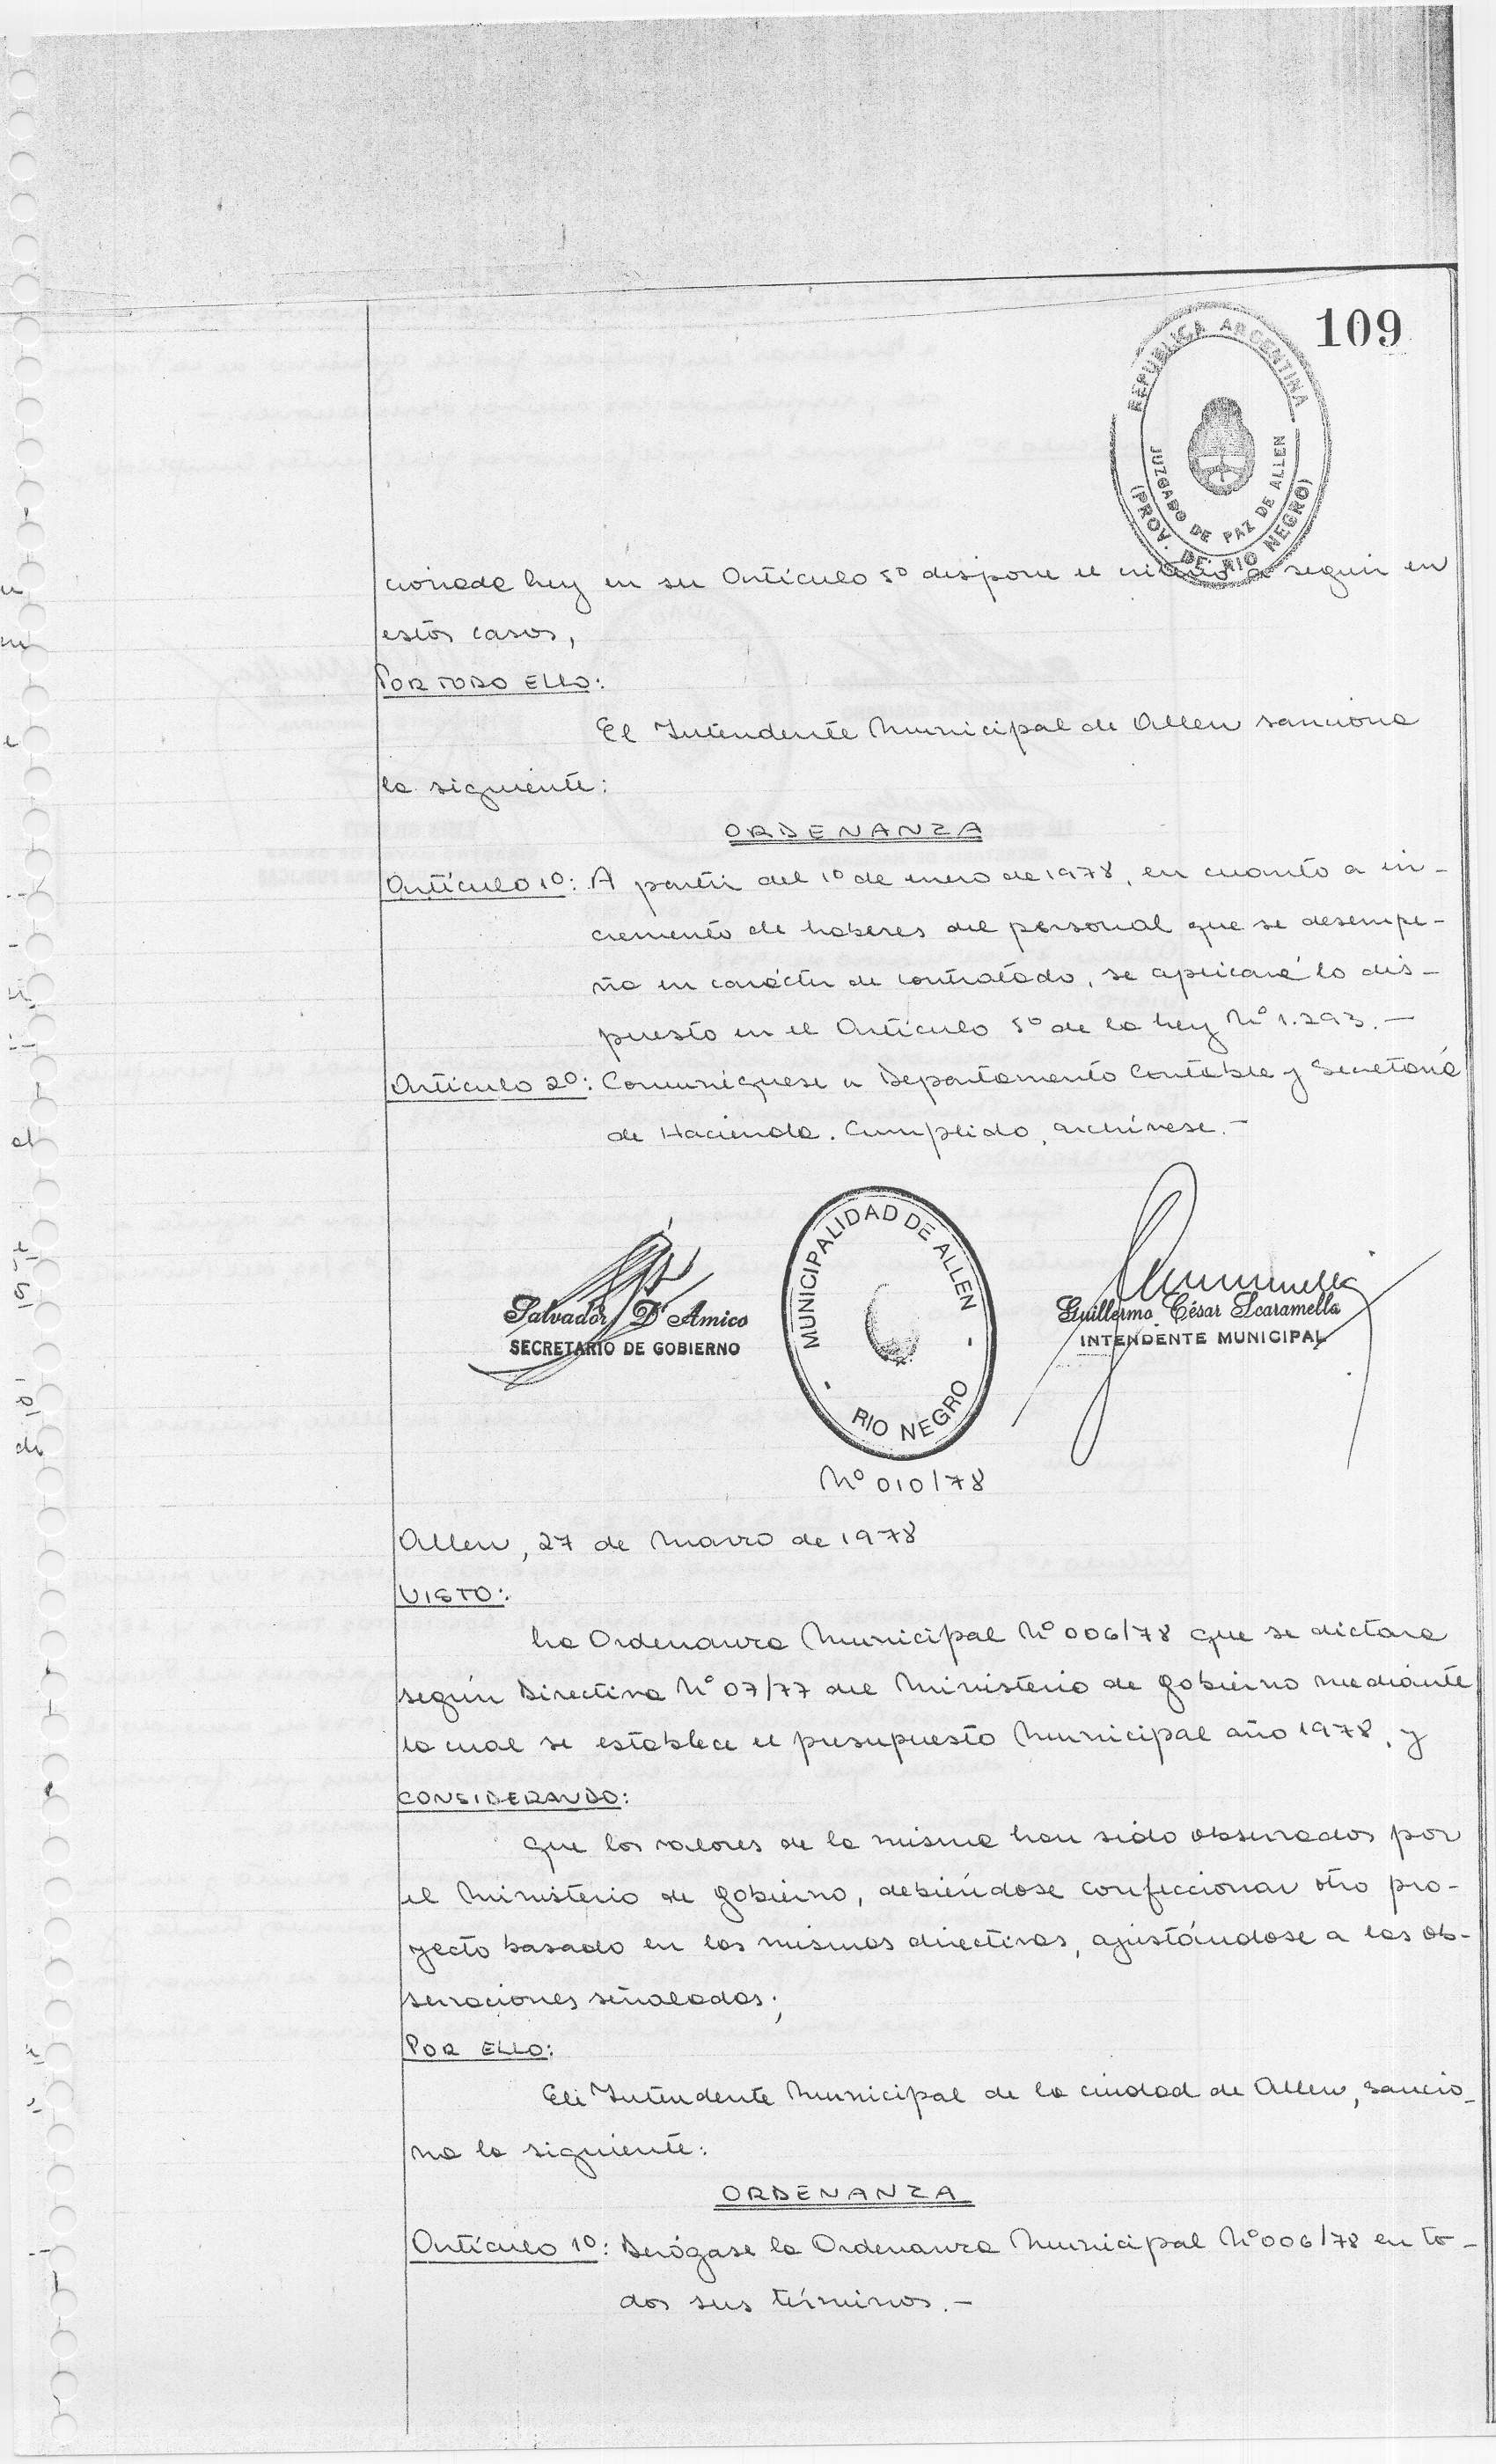 109
REPUBLICA ARGENTINA
JUZGADO DE PAZ DE ALLEN
(PROV. DE RIO NEGRO)
cionada Ley en su Artículo 5º dispone el criterio a seguir en
estos casos,
POR TODO ELLO:
El Intendente Municipal de Allen sanciona
la siguiente:
ORDENANZA
Artículo 1º: A partir del 1º de enero de 1978, en cuanto a in-
cremento de haberes del personal que se desempe-
ña en carácter de contratado, se aplicará lo dis-
puesto en el Artículo 5º de la Ley Nº 1.293.-
Artículo 2º: Comuníquese a Departamento Contable y Secretaría
de Hacienda. Cumplido, archívese.-
Salvador D'Amico
SECRETARIO DE GOBIERNO
MUNICIPALIDAD DE ALLEN
- RIO NEGRO -
Guillermo César Scaramella
INTENDENTE MUNICIPAL
Nº 010/78
Allen, 27 de Marzo de 1978
VISTO:
La Ordenanza Municipal Nº 006/78 que se dictara
según Directiva Nº 07/77 del Ministerio de Gobierno mediante
la cual se establece el presupuesto Municipal año 1978, y
CONSIDERANDO:
Que los valores de la misma han sido observados por
el Ministerio de Gobierno, debiéndose confeccionar otro pro-
yecto basado en las mismas directivas, ajustándose a las ob-
servaciones señaladas;
POR ELLO:
El Intendente Municipal de la ciudad de Allen, sancio-
na la siguiente:
ORDENANZA
Artículo 1º: Derógase la Ordenanza Municipal Nº 006/78 en to-
dos sus términos.-